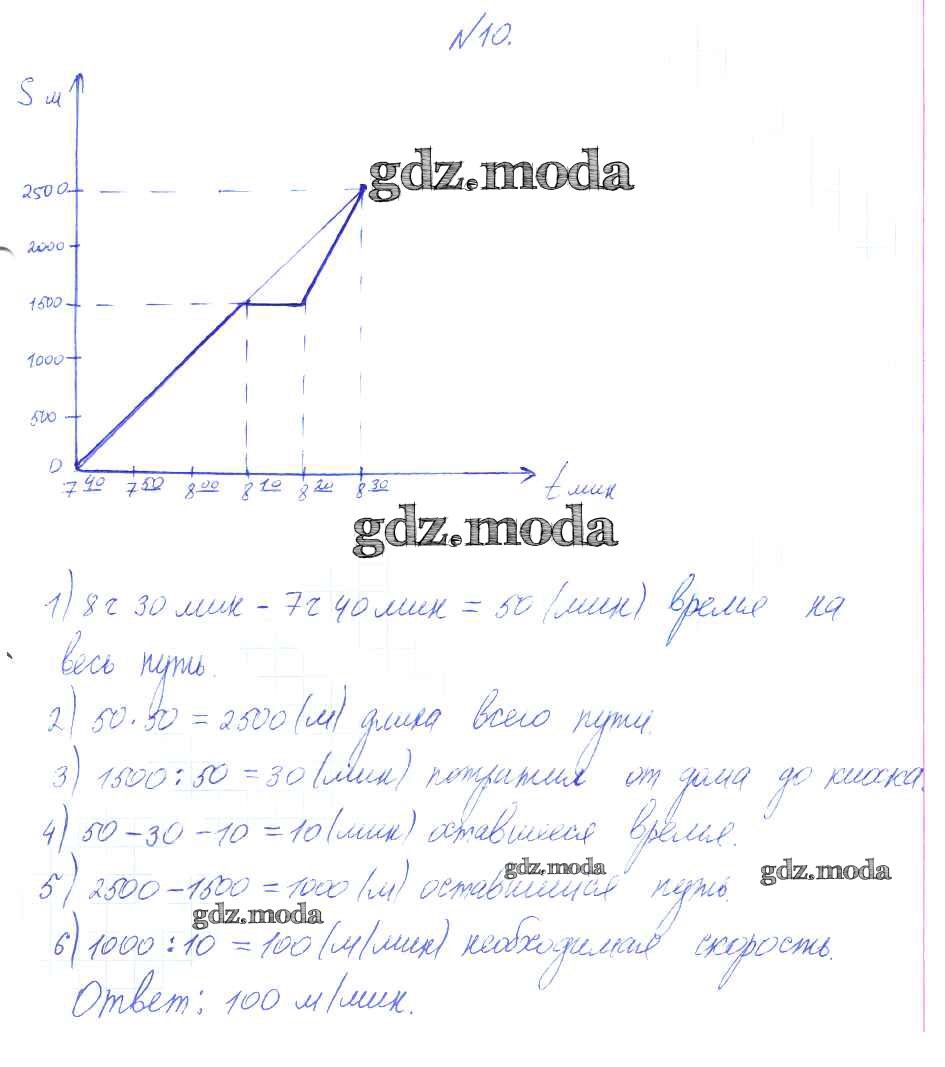 N10.
S м
gdz.moda
2500
2000
1500
1000
500
0
7 40 7 50 8 00 8 10 8 20 8 30 t мин
gdz.moda
1) 8 ч 30 мин - 7 ч 40 мин = 50 (мин) время на
весь путь.
2) 50·50 = 2500 (м) длина всего пути.
3) 1500 : 50 = 30 (мин) потратил от дома до киоска.
4) 50 - 30 - 10 = 10 (мин) оставшиеся время.
gdz.moda gdz.moda
5) 2500 - 1500 = 1000 (м) оставшийся путь.
gdz.moda
6) 1000 : 10 = 100 (м/мин) необходимая скорость.
Ответ: 100 м/мин.